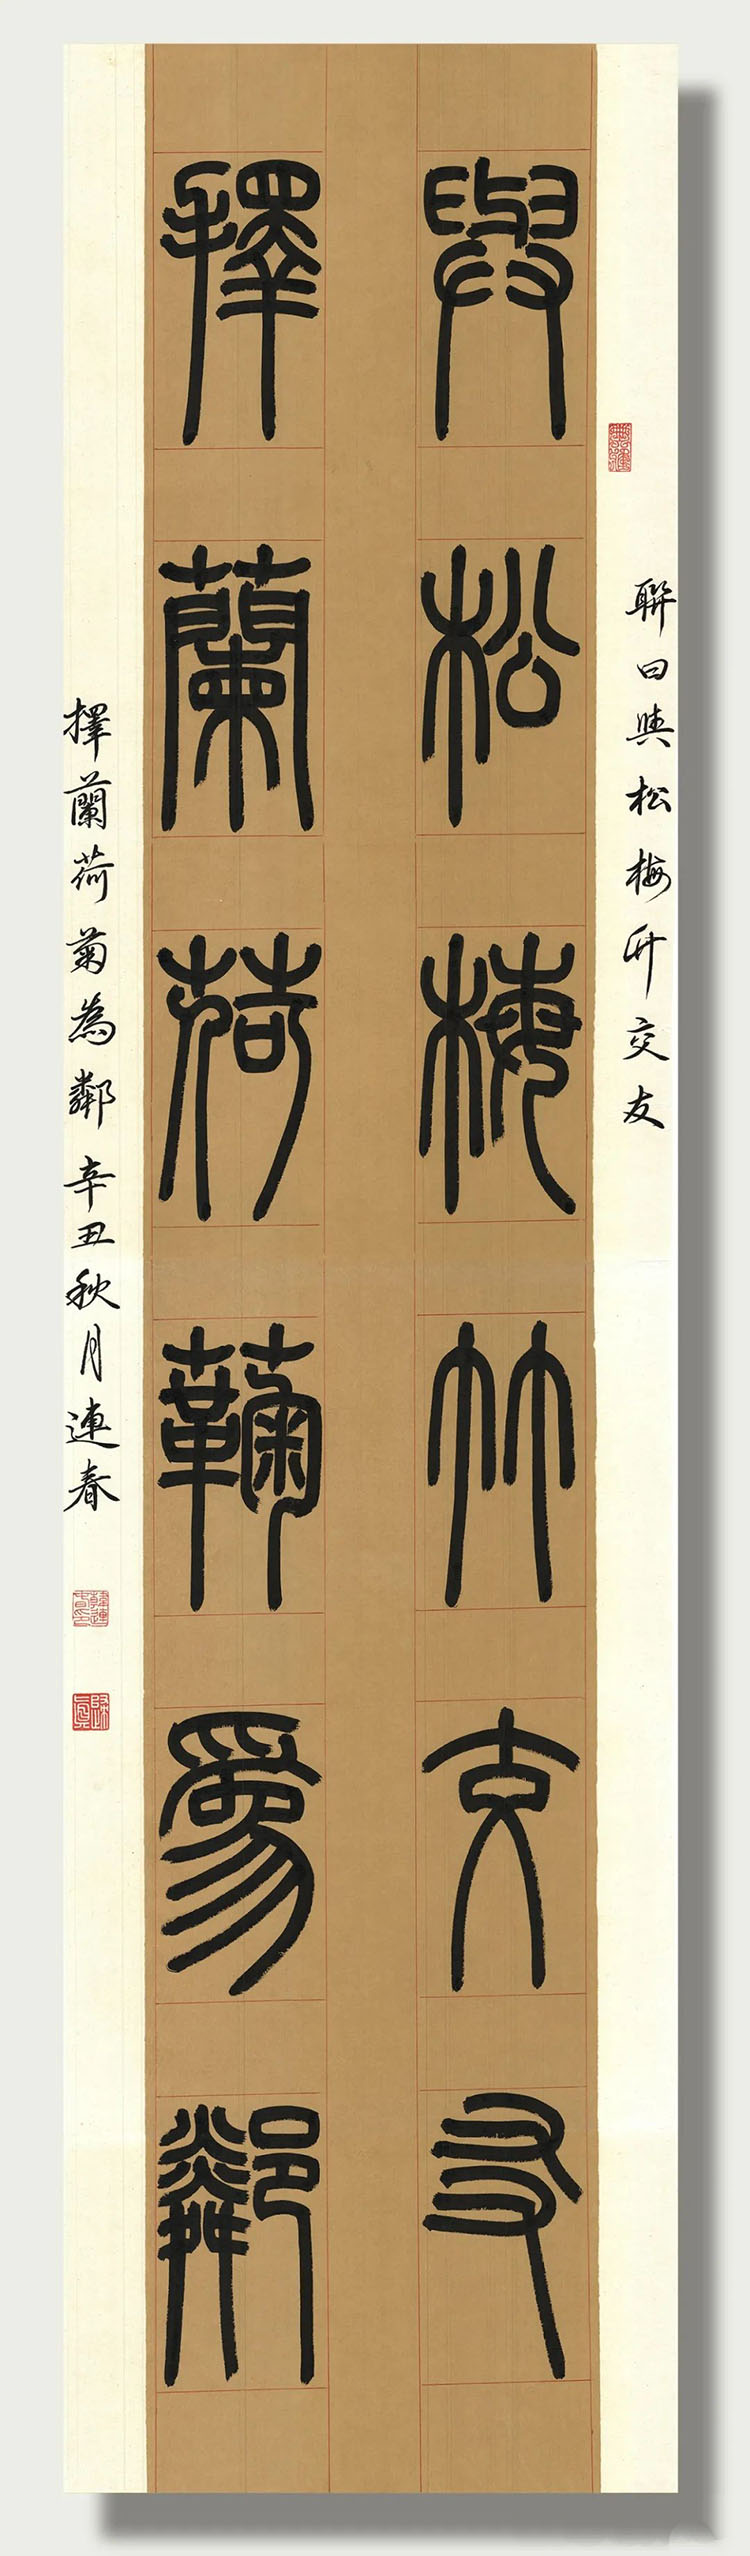 聯曰與松梅竹交友
與松梅竹交友
擇蘭荷菊為鄰
擇蘭荷菊為鄰辛丑秋月連春